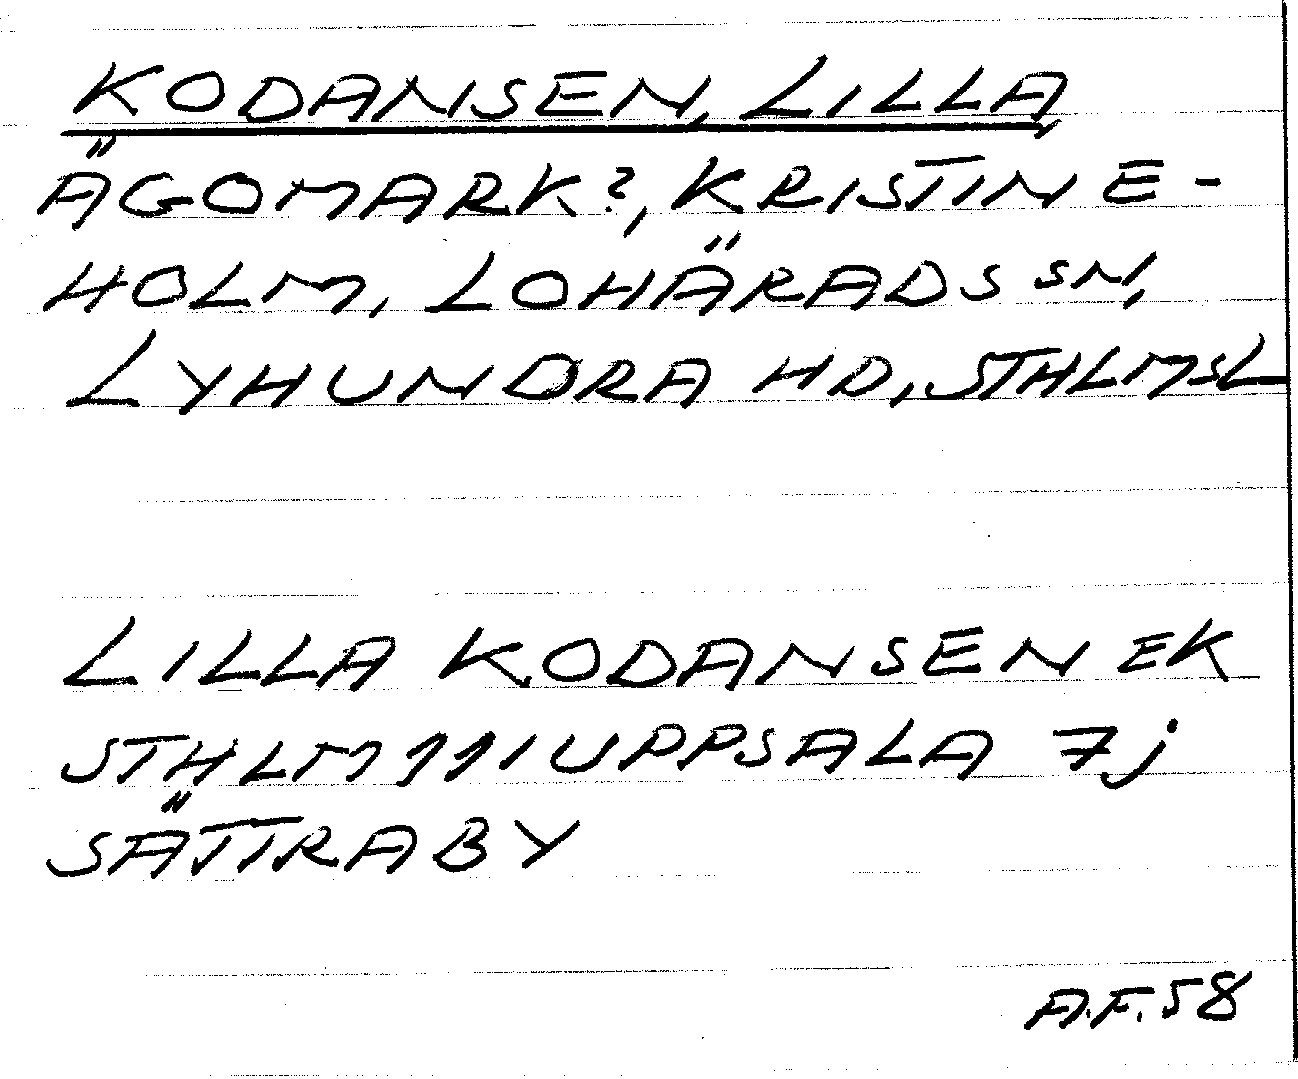 KODANSEN, LILLA,
ÄGOMARK?, KRISTINE-
HOLM, LOHÄRADS SN,
LYHUNDRA HD, STHLMSL
LILLA KODANSEN EK
STHLM 111 UPPSALA 7j
SÄTTRABY
A.F. 58